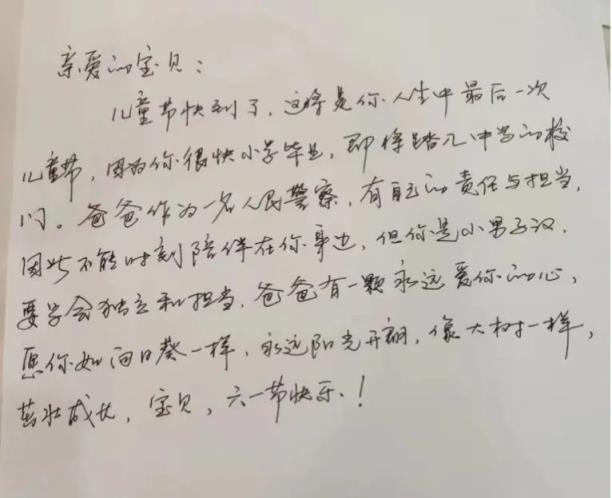 亲爱的宝贝：
儿童节快到了，这将是你人生中最后一次
儿童节，因为你很快小学毕业，即将踏入中学的校
门。爸爸作为一名人民警察，有自己的责任与担当，
因此不能时刻陪伴在你身边，但你是小男子汉，
要学会独立和担当，爸爸有一颗永远爱你的心，
愿你如向日葵一样，永远阳光开朗，像大树一样，
茁壮成长，宝贝，六一节快乐！